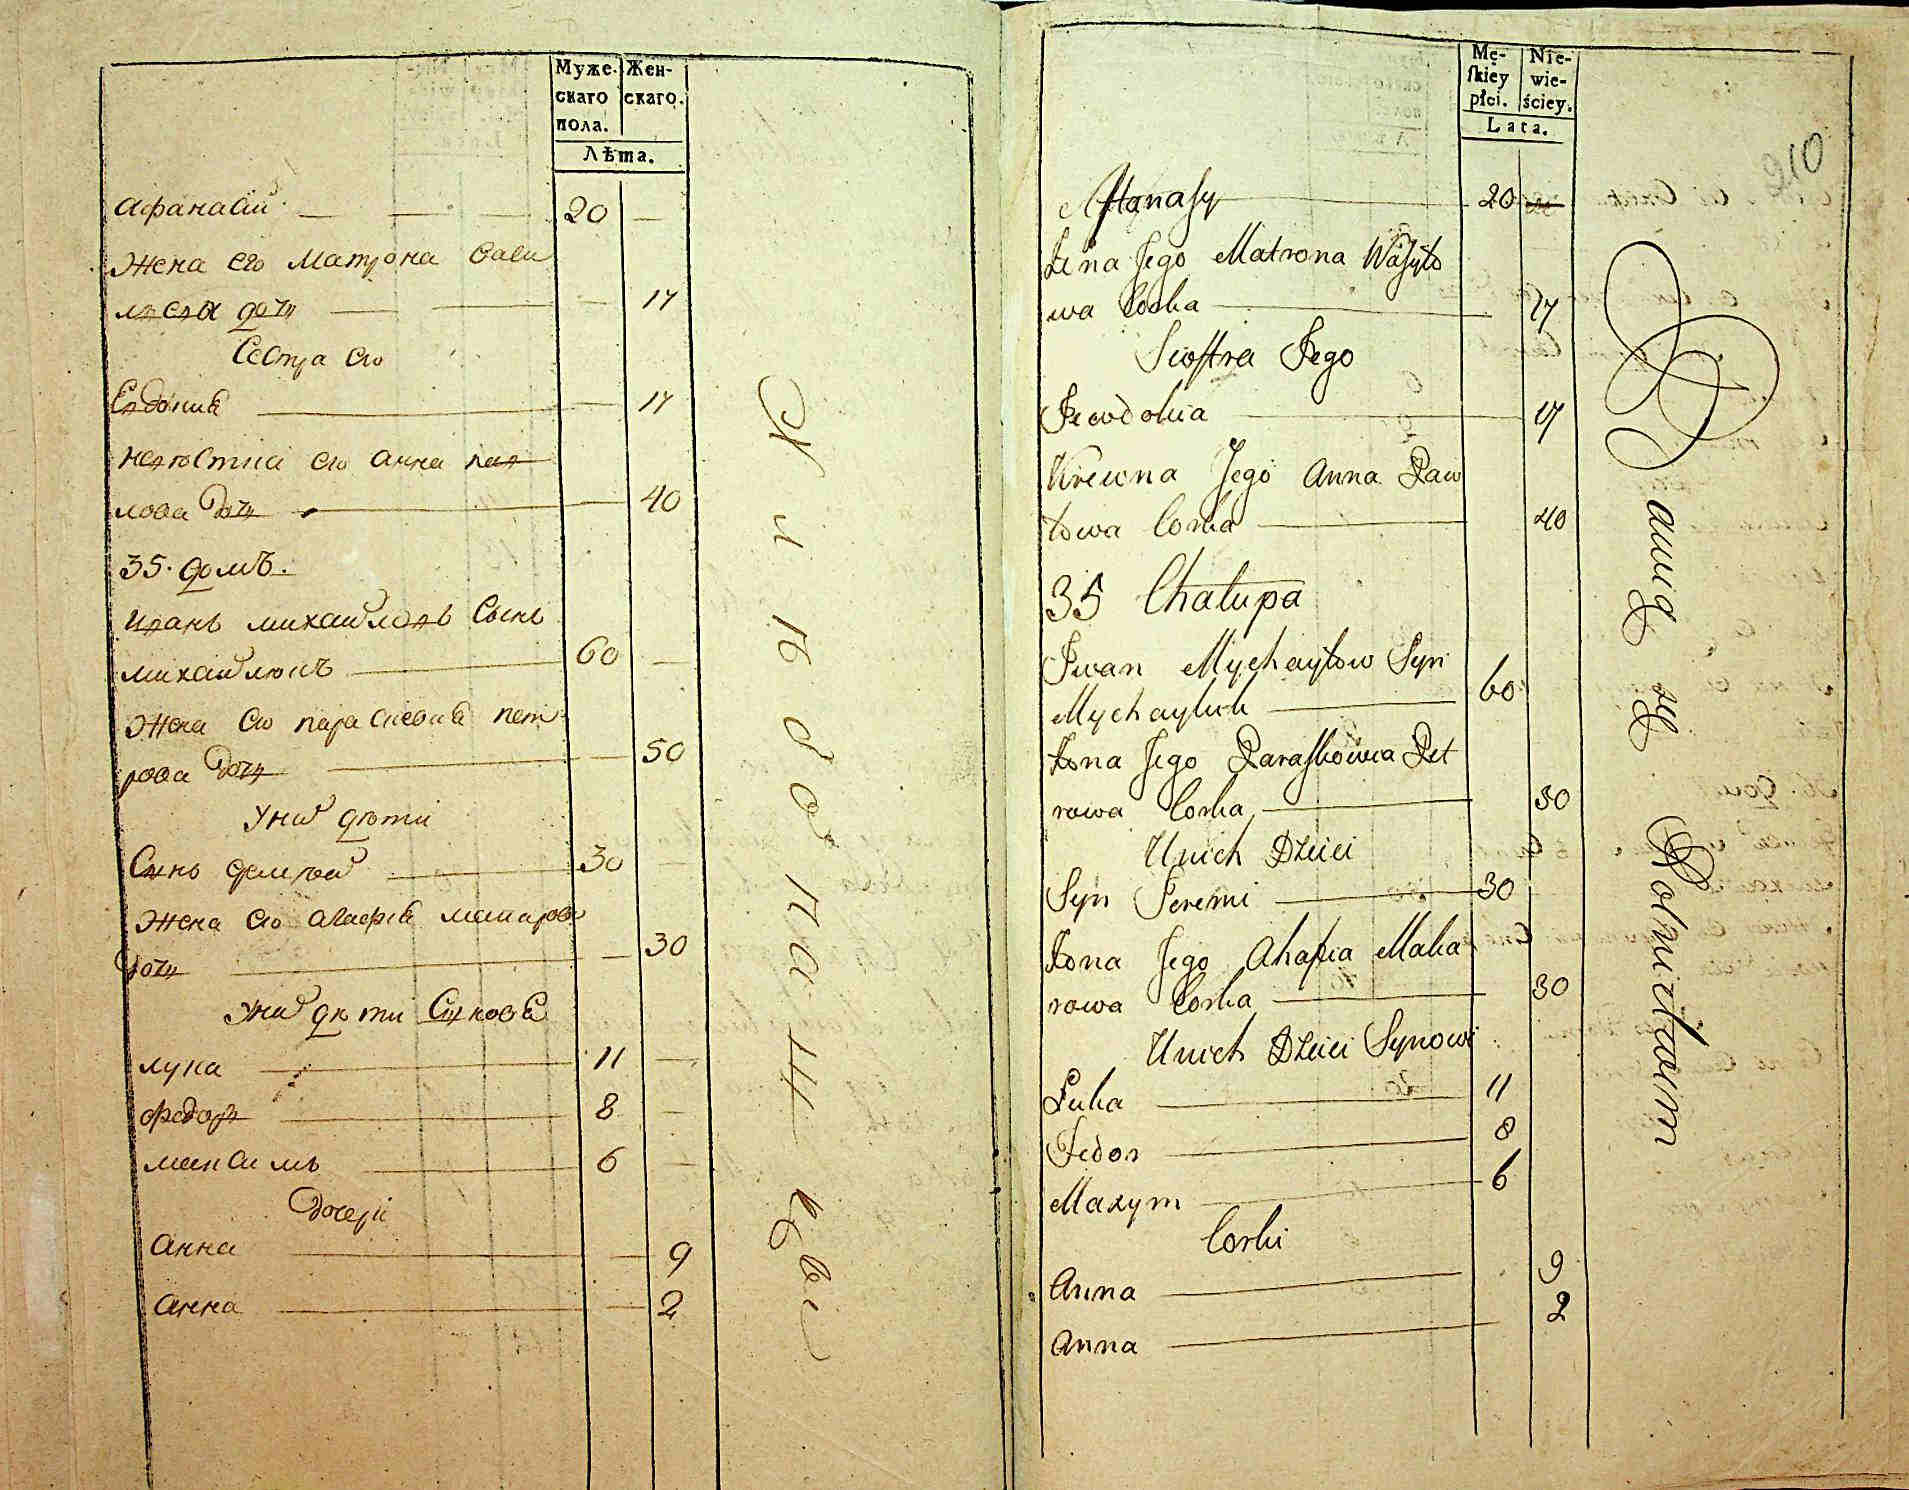 Муже-
скаго
пола.
Жен-
скаго.
Лѣта.
Афанасий 20
Жена его Матрона Васи
лова дочь 17
Сестра его
Евдокия 17
невѣстка его Анна Пав
лова дочь 40
35. домъ.
Иванъ михайловъ Сынъ
михайлюкъ 60
Жена его параскевия пет
рова дочь 50
У них дѣти
Сынъ Яремѣй 30
Жена его агафия макарова
дочь 30
У них дѣти Сыновя
лука 11
Федоръ 8
максимъ 6
дочери
Анна 9
Анна 2
Mę-
ſkiey
płci.
Nie-
wie-
ściey.
Lata.
210
Aftanasy 20
Żena Jego Matrona Wasyło
wa Corka 17
Siostra Jego
Jewdokia 17
Krewna Jego Anna Paw
łowa Corka 40
35 Chałupa
Iwan Mychayłow Syn
Mychayluk 60
Żona Jego Paraskowia Pet
rowa Corka 50
U nich Dzieci
Syn Jeremi 30
Żona Jego Ahafia Maka
rowa Corka 30
U nich Dzieci Synowi
Łuka 11
Fedor 8
Maxym 6
Corki
Anna 9
Anna 2
Rolnikom